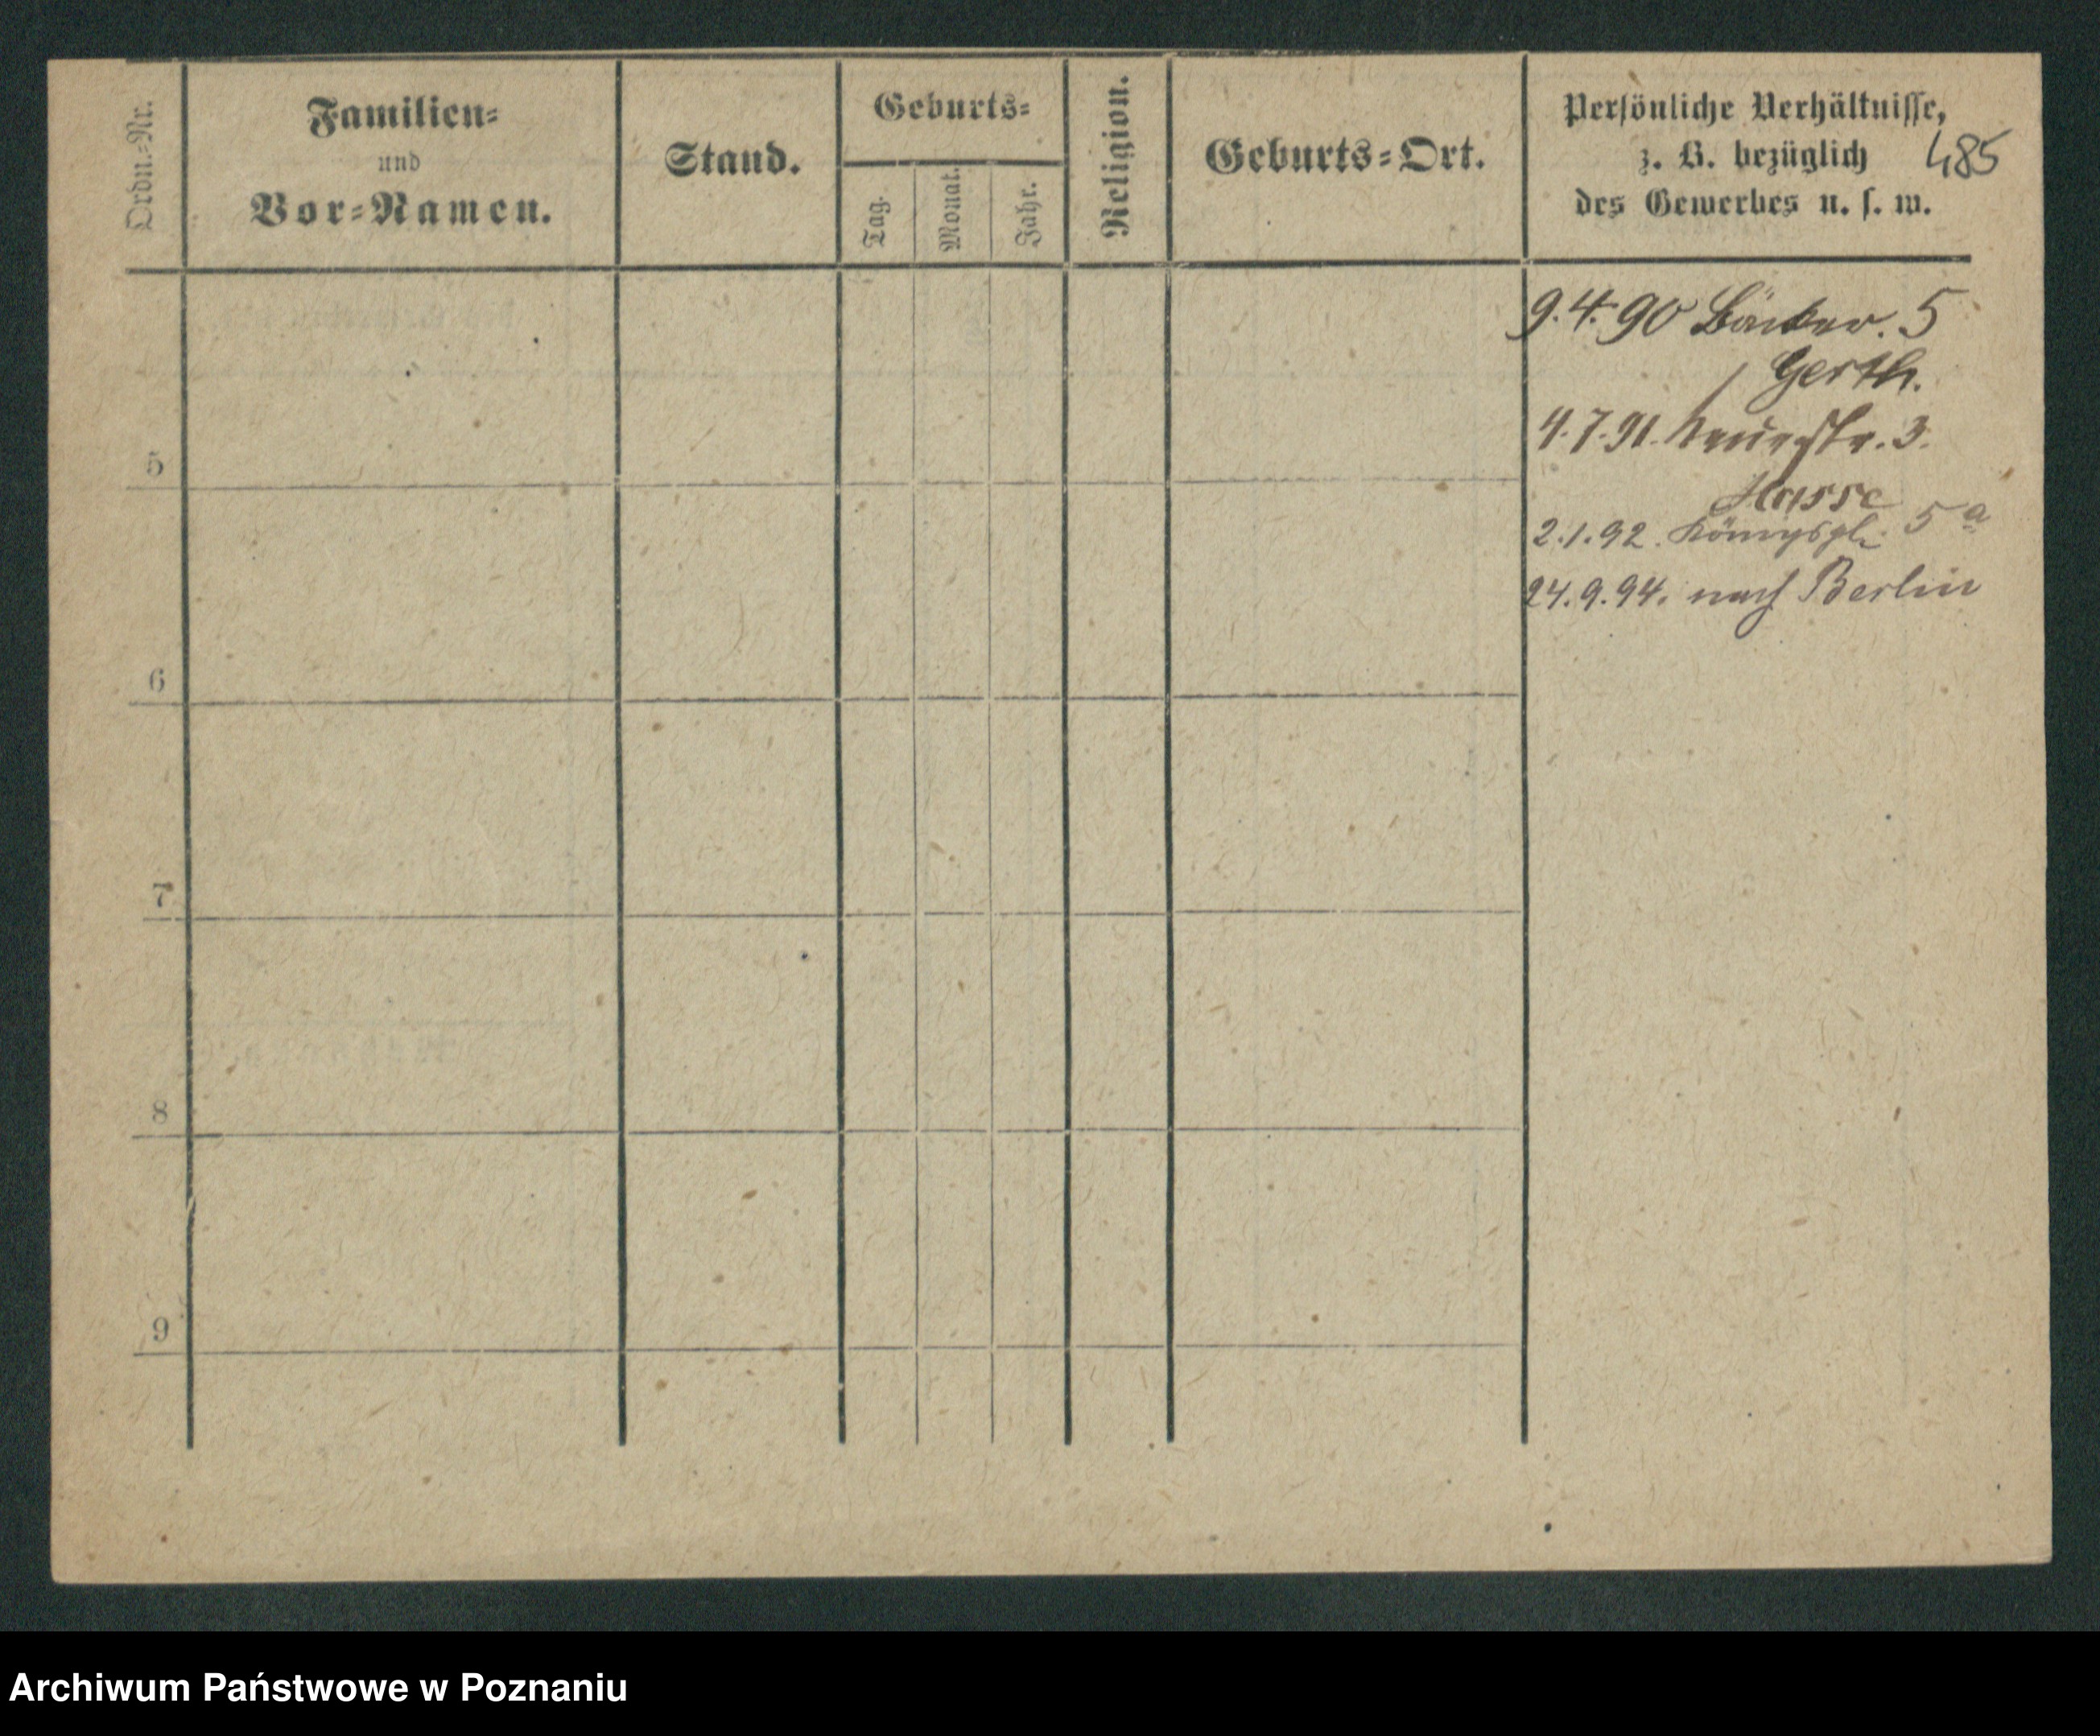 Ordn.=Nr.
Familien=
und
Vor=Namen.
Stand.
Geburts=
Tag.
Monat.
Jahr.
Religion.
Geburts=Ort.
Persönliche Verhältnisse,
z. B. bezüglich
des Gewerbes u. s. w.
485
9.4.90 Bäcker. 5
Gerth.
4.7.91. Neuestr. 3.
Hasse
2.1.92. Königspl. 5a
24.9.94. nach Berlin
5
6
7
8
9
Archiwum Państwowe w Poznaniu